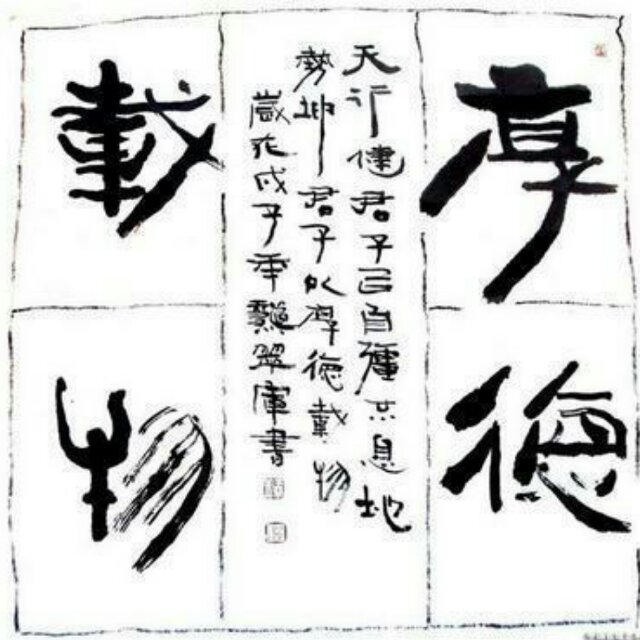 厚德
天行健君子㠯自彊不息地
勢坤君子以厚德載物
歲在戊子年書
載物